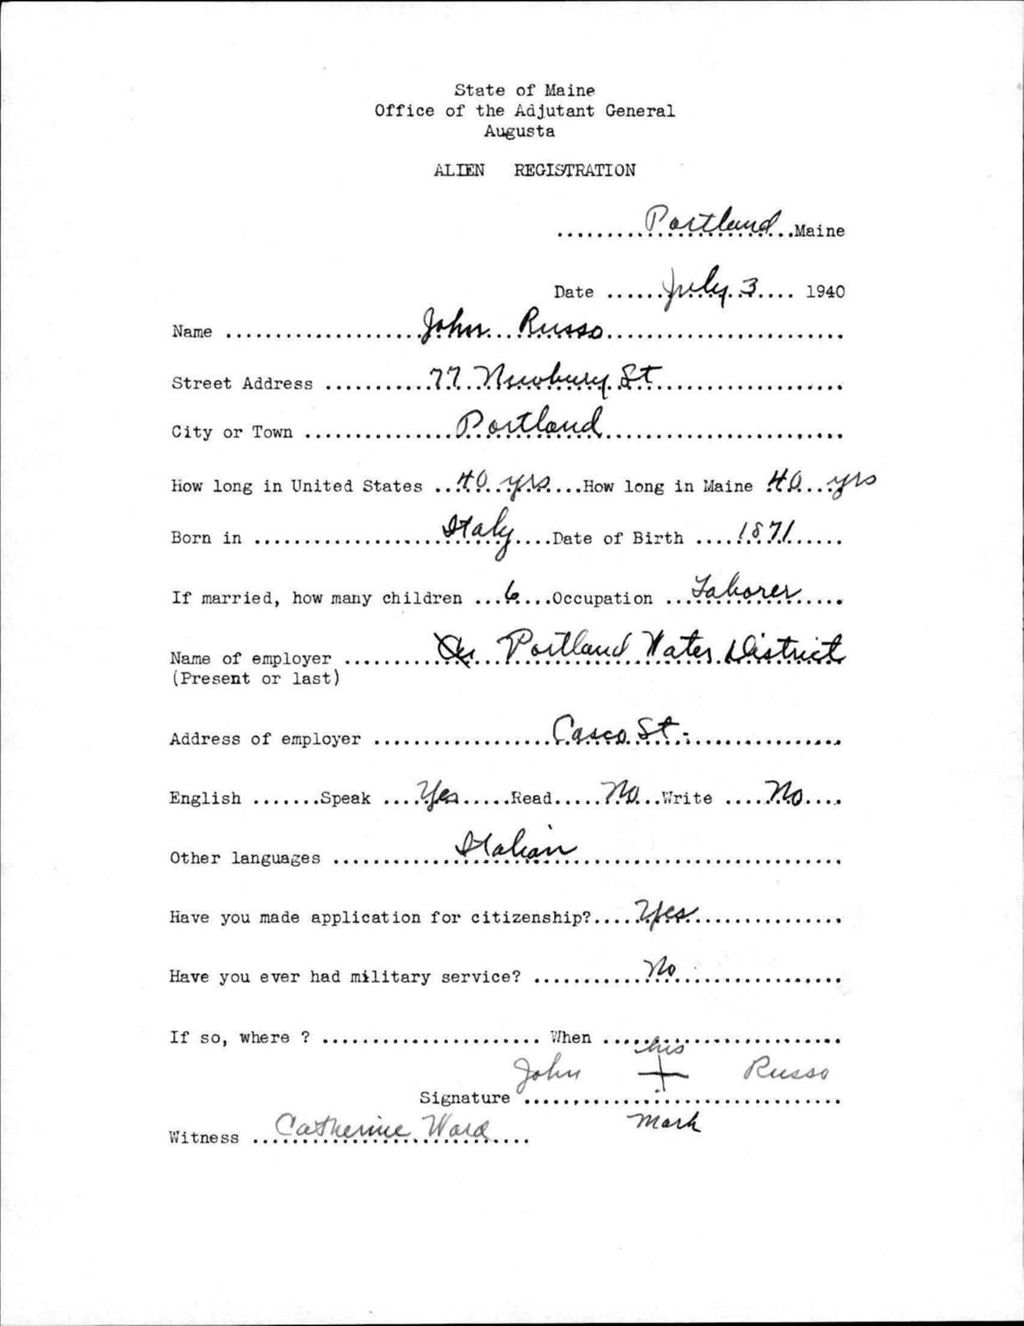 State of Maine
Office of the Adjutant General
Augusta
ALIEN REGISTRATION
.........Portland..Maine
Date ......July 3.... 1940
Name ...................John...Russo.........................
Street Address ...........77 Newbury St....................
City or Town ...............Portland.........................
How long in United States ..40 yrs...How long in Maine 40...yrs
Born in ....................Italy....Date of Birth ....1871......
If married, how many children ...6...Occupation ...Laborer.....
Name of employer ..........Portland Water District
(Present or last)
Address of employer ...................Casco St..................
English .......Speak ....Yes.....Read.....No...Write .....No....
Other languages .............Italian.............................
Have you made application for citizenship?....Yes................
Have you ever had military service? ............No.................
If so, where ? ...................... When ........................
his
John + Russo
Signature ................................
Mark
Witness ...Catherine Ward....